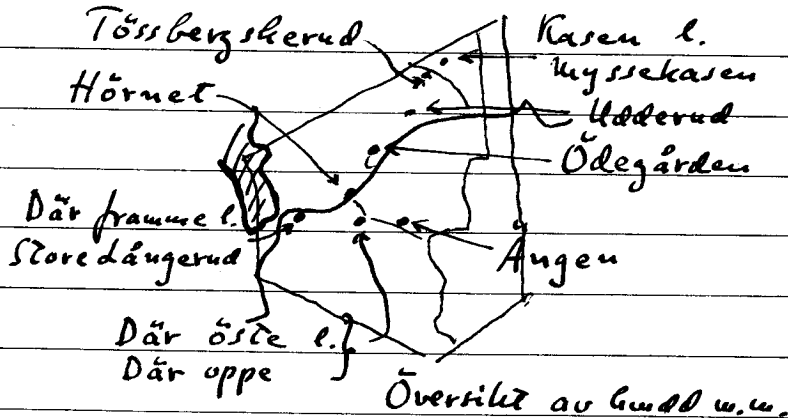 Tössbergskerud
Kasen l.
Myssekasen
Hörnet
Udderud
Ödegården
Där framme l.
Store Långerud
Ängen
Där öste l.
Där oppe
Översikt av m.m.